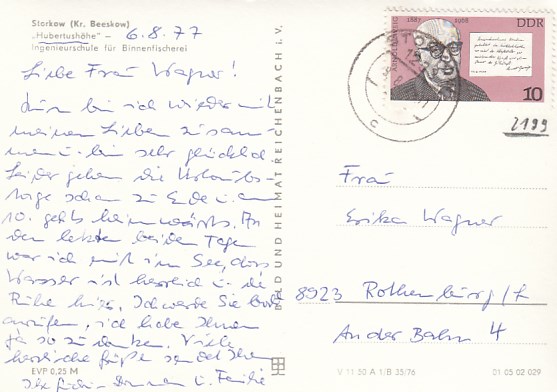 Storkow (Kr. Beeskow)
„Hubertushöhe" – 6.8.77
Ingenieurschule für Binnenfischerei
Liebe Frau Wagner!
Nun bin ich wieder mit
meinen Lieben zusam-
men u. bin sehr glücklich
Leider gehen die Urlaubs-
tage schon zu Ende u. am
10. gehts heimwärts. An
den letzten beiden Tagen
war ich mit im See, das
Wasser ist herrlich u. die
Ruhe hier. Ich werde Sie bald
anrufen, ich habe Ihnen
ja so zu danken. Viele
herzliche Grüße sendet Ihnen
Ihre u. Familie
EVP 0,25 M
BILD UND HEIMAT REICHENBACH i. V.
1887 1968
DDR
ARNOLD ZWEIG
10
2199
Frau
Erika Wagner
8923 Rothenburg/L
An der Bahn 4
V 11 50 A 1/B 35/76
01 05 02 029